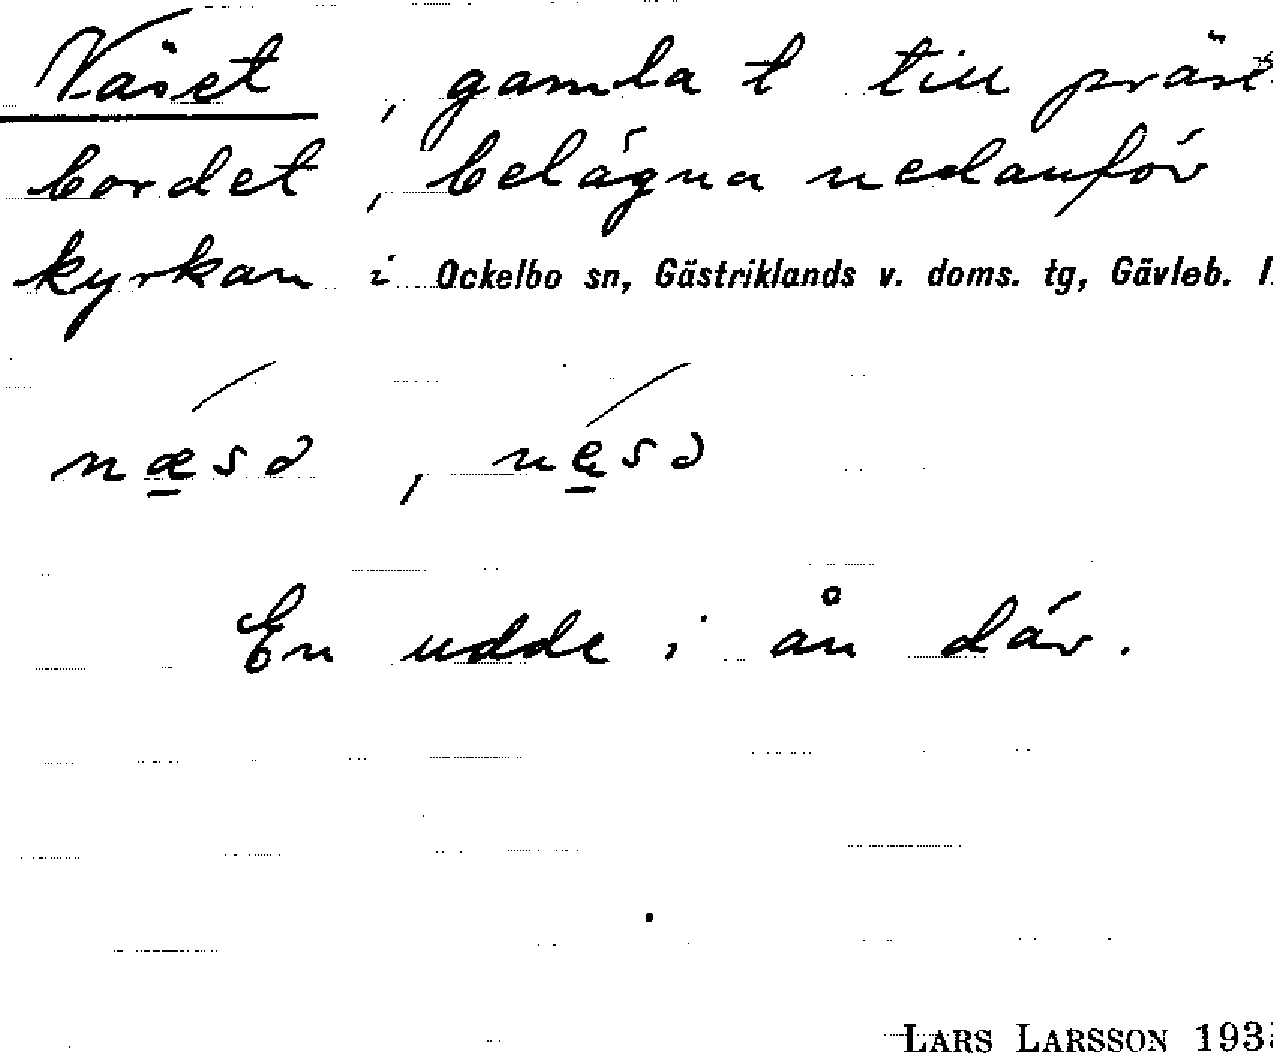 Näset, gamla t till präst
bordet, belägna nedanför
kyrkan i Ockelbo sn, Gästriklands v. doms. tg, Gävleb. l.
næsə, nesə
En udde i ån där.
LARS LARSSON 193